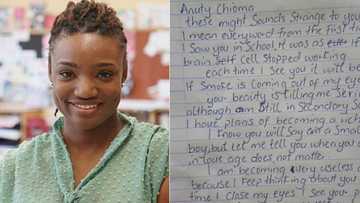 Anuty Chioma,
these might Sounds Strange to you
I mean everyword from the first ti
I saw you in School, it was as
brain Self Cell Stopped working
each time I See you it will be
if Smoke is coming out of my e
you beauty is killing me Serio
although am Still in Secondary
I have plans of becoming a
I know you will Say am a Smal
boy, but let me tell you when you a
in love age does not matter
I am becoming very useless a
because I Keep thinking about you
time I Close my eyes I See you p